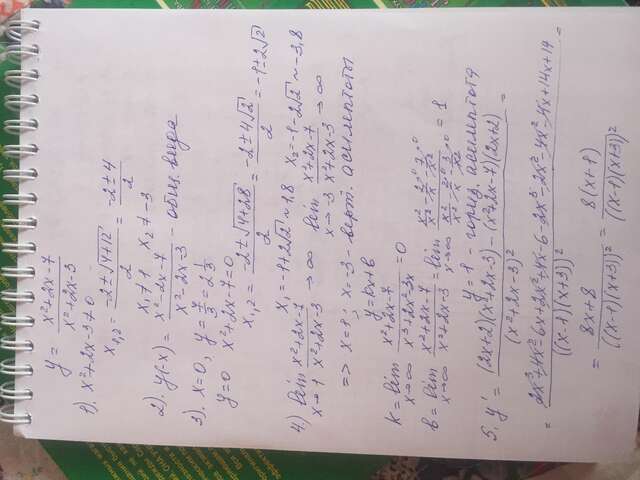 y = (x²+2x-7)/(x²+2x-3)
1). x²+2x-3≠0
x₁,₂ = (-2±√(4+12))/2 = (-2±4)/2
x₁≠1 x₂≠-3
2). y(-x) = (x²-2x-7)/(x²-2x-3) - общ. вида
3). x=0, y = 7/3 = 2 1/3
y=0 x²+2x-7=0
x₁,₂ = (-2±√(4+28))/2 = (-2±4√2)/2 = -1±2√2
x₁ = -1+2√2 ~ 1,8 x₂ = -1-2√2 ~ -3,8
4) lim x→1 (x²+2x-7)/(x²+2x-3) → ∞ lim x→-3 (x²+2x-7)/(x²+2x-3) → ∞
=> x=1; x=-3 - верт. асимптоты
y=kx+b
k = lim x→∞ (x²+2x-7)/(x³+2x²-3x) = 0
b = lim x→∞ (x²+2x-7)/(x²+2x-3) = lim x→∞ = 1
y=1 - гориз. асимптота
5. y' = ((2x+2)(x²+2x-3)-(x²+2x-7)(2x+2))/(x²+2x-3)² =
= (2x³+4x²-6x+2x²+4x-6-2x³-2x²-4x²-4x+14x+14)/((x-1)(x+3))² =
= (8x+8)/((x-1)(x+3))² = 8(x+1)/((x-1)(x+3))²